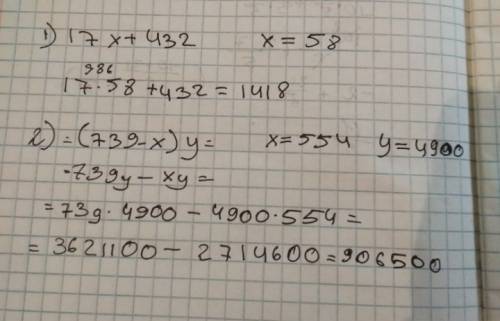 1) 17x+432 x = 58
986
17·58+432 = 1418
2) =(739-x)y= x=554 y=4900
·739y-xy=
=739·4900-4900·554=
=3621100-2714600=906500